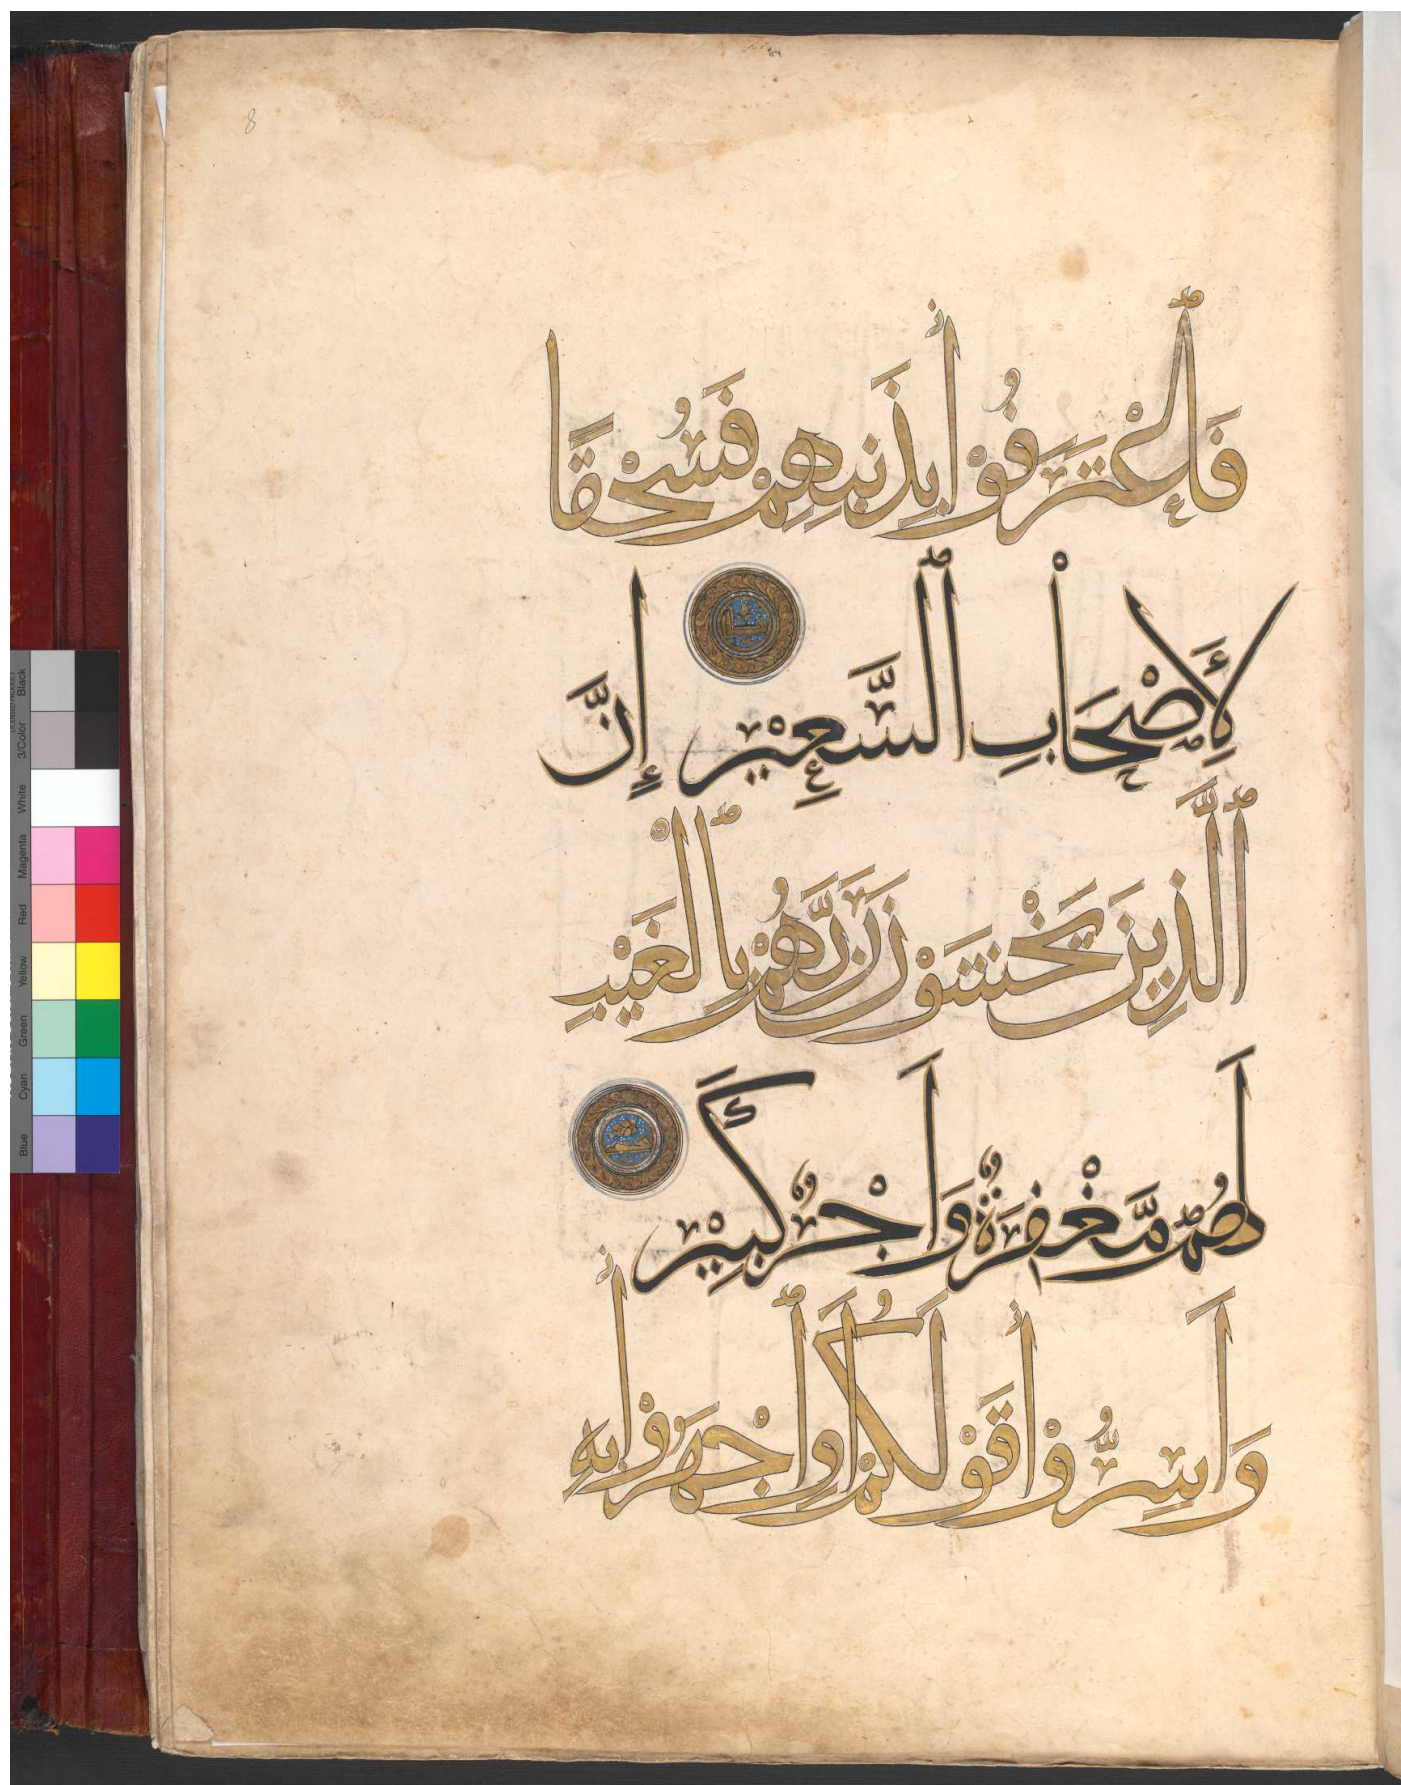 8
فَٱعْتَرَفُوْا بِذَنبِهِمْ فَسُحْقًا
لِأَصْحَابِ ٱلسَّعِيْرِ إِنَّ
ٱلَّذِينَ يَخْشَوْنَ رَبَّهُمْ بِٱلْغَيْبِ
لَهُم مَّغْفِرَةٌ وَأَجْرٌ كَبِيْرٌ
وَأَسِرُّوْا قَوْلَكُمْ أَوِ ٱجْهَرُوْا بِهِ
Blue Cyan Green Yellow Red Magenta White 3/Color Black